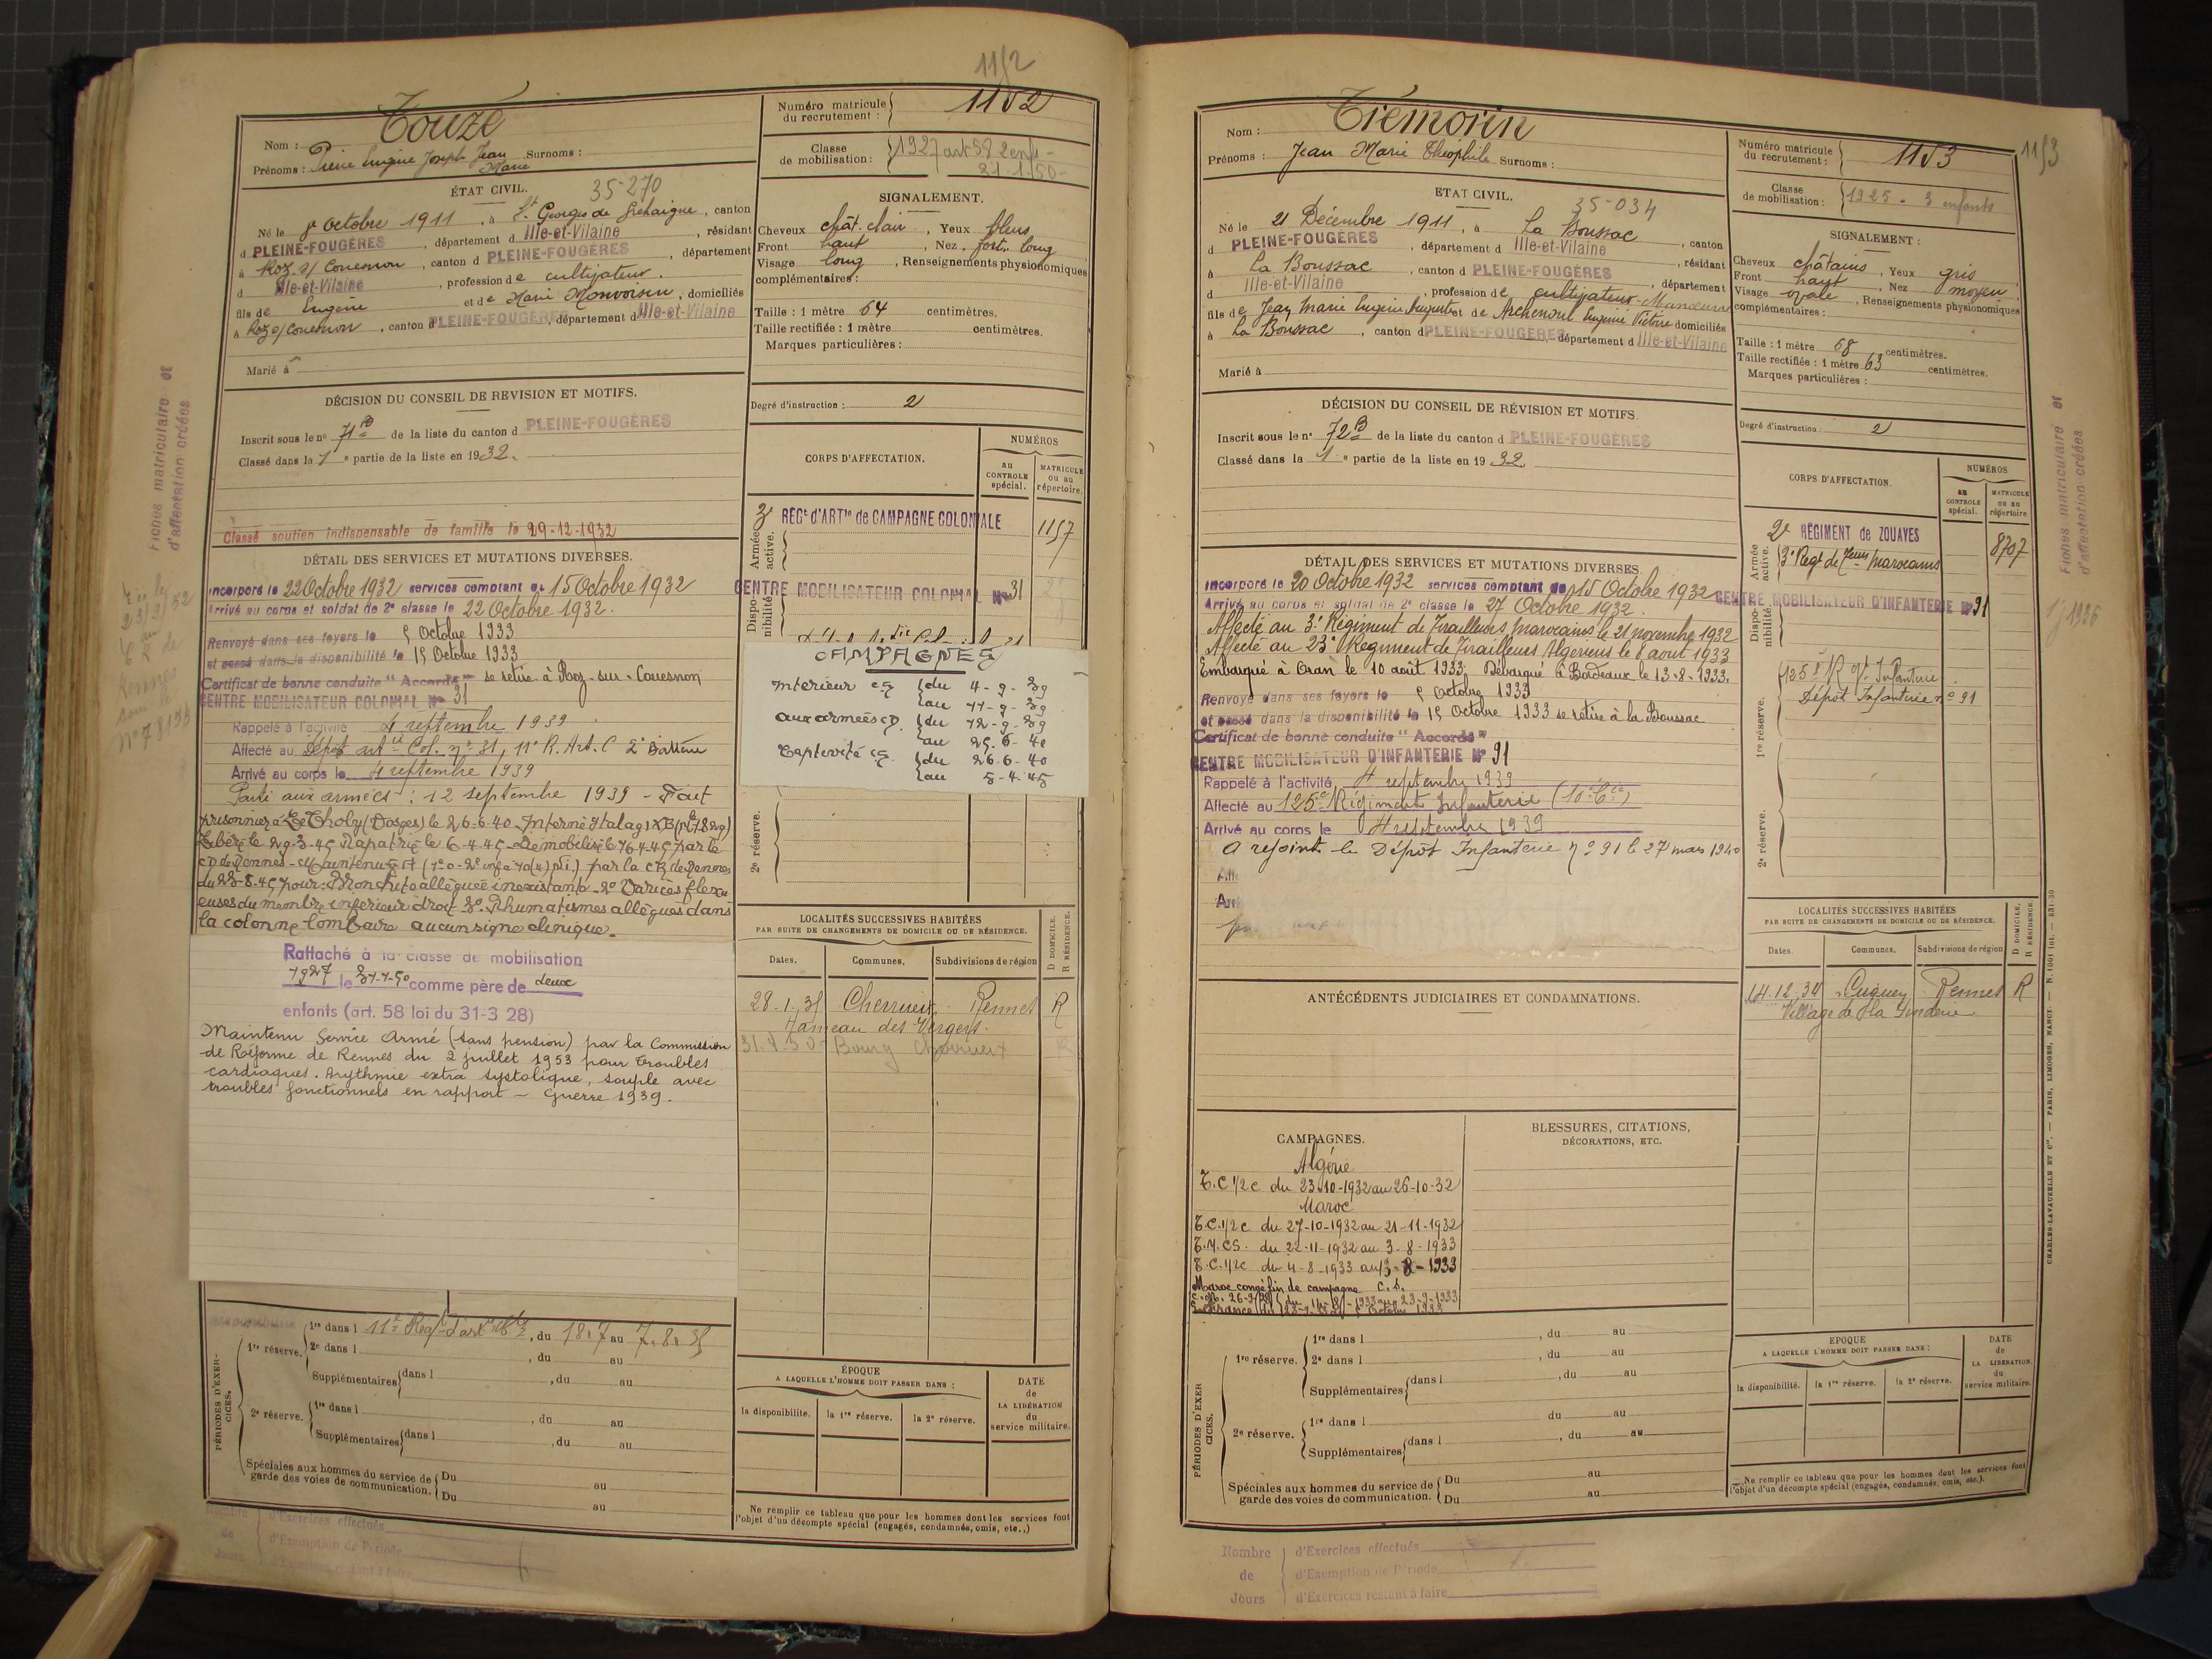 1152
Nom : Touzé
Prénoms : Pierre Eugène Joseph Jean Surnoms :
Marie
Numéro matricule du recrutement : 1152
Classe de mobilisation : 1927 art 58 2 enfs -
21-1-50-
ÉTAT CIVIL. 35-270
Né le octobre 1911, à St Georges de Gréhaigne, canton
d PLEINE-FOUGÈRES, département d Ille-et-Vilaine, résidant
à Roz s/ Couesnon, canton d PLEINE-FOUGÈRES, département
d Ille-et-Vilaine, profession de cultivateur.
fils de Eugène et de Marie Monvoisin, domiciliés
à Roz s/ Couesnon, canton d PLEINE-FOUGÈRES, département d Ille-et-Vilaine
Marié à
SIGNALEMENT.
Cheveux chât. clair, Yeux bleus
Front haut, Nez fort, long
Visage long, Renseignements physionomiques
complémentaires :
Taille : 1 mètre 64 centimètres.
Taille rectifiée : 1 mètre centimètres.
Marques particulières :
DÉCISION DU CONSEIL DE REVISION ET MOTIFS.
Inscrit sous le no 71 B de la liste du canton d PLEINE-FOUGÈRES
Classé dans la 1e partie de la liste en 1932.
Classé soutien indispensable de famille le 29-12-1932
Degré d'instruction : 2
CORPS D'AFFECTATION.
NUMÉROS
au CONTROLE spécial.
MATRICULE ou au répertoire.
Armée active.
3e RÉGt d'ARTie de CAMPAGNE COLONIALE 1157
Disponibilité
CENTRE MOBILISATEUR COLONIAL No 31
DÉTAIL DES SERVICES ET MUTATIONS DIVERSES.
Incorporé le 22 Octobre 1932 services comptant du 15 Octobre 1932
Arrivé au corps et soldat de 2e classe le 22 Octobre 1932.
Renvoyé dans ses foyers le Octobre 1933
et passé dans la disponibilité le 15 Octobre 1933
Certificat de bonne conduite "Accordé" se retire à Roz-sur-Couesnon
CENTRE MOBILISATEUR COLONIAL No 31
Rappelé à l'activité 4 septembre 1939
Affecté au Dépôt artie Col. no 31, 11e R. Art. C 2e Batterie
Arrivé au corps le 4 septembre 1939
Parti aux armées : 12 septembre 1939 - Fait
prisonnier à Le Tholy (Vosges) le 26-6-40 Interné Stalag XB
Libéré le 29-3-45 Rapatrié le 6-4-45 Démobilisé le 16-4-45 par le
CD de Rennes - Maintenu SA par la CR de Rennes
du 23-8-45 pour : Bronchite alléguée inexistante - 2o Varices flexu
euses du membre inférieur droit 3o. Rhumatismes allégués dans
la colonne lombaire aucun signe clinique.
Rattaché à la classe de mobilisation
1927 le 21-1-50 comme père de deux
enfants (art. 58 loi du 31-3 28)
Maintenu Service Armé (sans pension) par la Commission
de Réforme de Rennes du 2 juillet 1953 pour troubles
cardiaques. Arythmie extra systolique, souple avec
troubles fonctionnels en rapport - Guerre 1939.
CAMPAGNES
Intérieur CS du 4-9-39
au 11-9-39
aux armées CD. du 12-9-39
au 25-6-40
Captivité CS du 26-6-40
au 5-4-45
2e réserve.
LOCALITÉS SUCCESSIVES HABITÉES
PAR SUITE DE CHANGEMENTS DE DOMICILE OU DE RÉSIDENCE.
D DOMICILE. R RÉSIDENCE.
Dates. Communes. Subdivisions de région
28.1.35 Cherrueix Rennes R
Hameau des Vergers.
Bourg Cherrueix R
PÉRIODES D'EXERCICES.
1re réserve. 1re dans l 11e Régt d'artie Cle, du 18.7 au 7.8.35
2e dans l , du au
Supplémentaires dans l , du au
2e réserve. 1re dans l , du au
Supplémentaires dans l , du au
Spéciales aux hommes du service de garde des voies de communication. Du au
Du au
ÉPOQUE
A LAQUELLE L'HOMME DOIT PASSER DANS :
la disponibilité. la 1re réserve. la 2e réserve.
DATE de LA LIBÉRATION du service militaire.
Ne remplir ce tableau que pour les hommes dont les services font
l'objet d'un décompte spécial (engagés, condamnés, omis, etc.,)
Nombre de Jours
d'Exercices effectués
d'Exemption de Période
d'Exercices restant à faire
Fiches matriculaire et
d'affectation créées
1153
Nom : Trémorin
Prénoms : Jean Marie Théophile Surnoms :
Numéro matricule du recrutement : 1153
Classe de mobilisation : 1925 - 3 enfants
ETAT CIVIL. 35-034
Né le 21 Décembre 1911, à La Boussac, canton
d PLEINE-FOUGÈRES, département d Ille-et-Vilaine, résidant
à La Boussac, canton d PLEINE-FOUGÈRES, département
d Ille-et-Vilaine, profession de cultivateur
fils de Jean Marie Eugène Auguste et de Archenoul Eugénie Victoire domiciliés
à La Boussac, canton d PLEINE-FOUGÈRES, département d Ille-et-Vilaine
Marié à
SIGNALEMENT :
Cheveux châtains, Yeux gris
Front haut, Nez moyen
Visage ovale, Renseignements physionomiques
complémentaires :
Taille : 1 mètre 68 centimètres.
Taille rectifiée : 1 mètre 63 centimètres.
Marques particulières :
DÉCISION DU CONSEIL DE RÉVISION ET MOTIFS.
Inscrit sous le no 72 B de la liste du canton d PLEINE-FOUGÈRES
Classé dans la 1e partie de la liste en 1932
Degré d'instruction : 2
CORPS D'AFFECTATION.
NUMÉROS
au CONTROLE spécial.
MATRICULE ou au répertoire.
Armée active.
2e RÉGIMENT de ZOUAVES 8707
3e Régt de Tirs Marocains
Disponibilité
CENTRE MOBILISATEUR D'INFANTERIE No 91
1re réserve.
125e R gt Infanterie
Dépôt Infanterie no 91
2e réserve.
DÉTAIL DES SERVICES ET MUTATIONS DIVERSES.
Incorporé le 20 Octobre 1932 services comptant du 15 Octobre 1932
Arrivé au corps et soldat de 2e classe le 27 Octobre 1932.
Affecté au 3e Régiment de Tirailleurs marocains le 21 novembre 1932
Affecté au 23e Régiment de Tirailleurs Algériens le 8 août 1933
Embarqué à Oran le 10 août 1933. Débarqué à Bordeaux le 13-8-1933.
Renvoyé dans ses foyers le Octobre 1933
et passé dans la disponibilité le 15 Octobre 1933 se retire à la Boussac
Certificat de bonne conduite "Accordé"
CENTRE MOBILISATEUR D'INFANTERIE No 91
Rappelé à l'activité 4 septembre 1939
Affecté au 125e Régiment Infanterie (10e Cie)
Arrivé au corps le 4 septembre 1939
A rejoint le Dépôt Infanterie no 91 le 27 mars 1940
ANTÉCÉDENTS JUDICIAIRES ET CONDAMNATIONS.
LOCALITÉS SUCCESSIVES HABITÉES
PAR SUITE DE CHANGEMENTS DE DOMICILE OU DE RÉSIDENCE.
D DOMICILE. R RÉSIDENCE
Dates. Communes. Subdivisions de région
14.12.34 Cuguen Rennes R
Village de la
CAMPAGNES.
Algérie
T.C 1/2c du 23-10-1932 au 26-10-32
Maroc
T.C. 1/2c du 27-10-1932 au 21-11-1932
du 22-11-1932 au 3-8-1933
T.C. 1/2c du 4-8-1933 au 13-8-1933
Maroc congé fin de campagne C.S.
BLESSURES, CITATIONS,
DÉCORATIONS, ETC.
PÉRIODES D'EXERCICES.
1re réserve. 1re dans l , du au
2e dans l , du au
Supplémentaires dans l , du au
2e réserve. 1re dans l du au
Supplémentaires dans l , du au
Spéciales aux hommes du service de garde des voies de communication. Du au
Du au
EPOQUE
A LAQUELLE L'HOMME DOIT PASSER DANS :
la disponibilité. la 1re réserve. la 2e réserve.
DATE de LA LIBÉRATION du service militaire.
Ne remplir ce tableau que pour les hommes dont les services font
l'objet d'un décompte spécial (engagés, condamnés, omis, etc.).
Nombre de Jours
d'Exercices effectués
d'Exemption de Période
d'Exercices restant à faire
Fiches matriculaire et
d'affectation créées
CHARLES-LAVAUZELLE ET Cie. — PARIS, LIMOGES, NANCY.